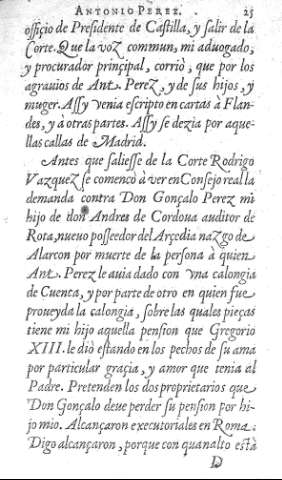 ANTONIO PEREZ. 25
officio de Presidente de Castilla, y salir de la
Corte. Que la voz commun, mi aduogado,
y procurador prinçipal, corriò, que por los
agrauios de Ant. Perez, y de sus hijos, y
muger. Assy venia escripto en cartas à Flan-
des, y à otras partes. Assy se dezia por aque-
llas callas de Madrid.
Antes que saliesse de la Corte Rodrigo
Vazquez se començò à ver en Consejo real la
demanda contra Don Gonçalo Perez mi
hijo de don Andres de Cordoua auditor de
Rota, nueuo posseedor del Arçedianazgo de
Alarcon por muerte de la persona à quien
Ant. Perez le auia dado con vna calongia
de Cuenca, y por parte de otro en quien fue
proueyda la calongia, sobre las quales pieças
tiene mi hijo aquella pension que Gregorio
XIII. le diò estando en los pechos de su ama
por particular graçia, y amor que tenia al
Padre. Pretenden los dos proprietarios que
Don Gonçalo deue perder su pension por hi-
jo mio. Alcançaron executoriales en Roma.
Digo alcançaron, porque con quanalto està
D